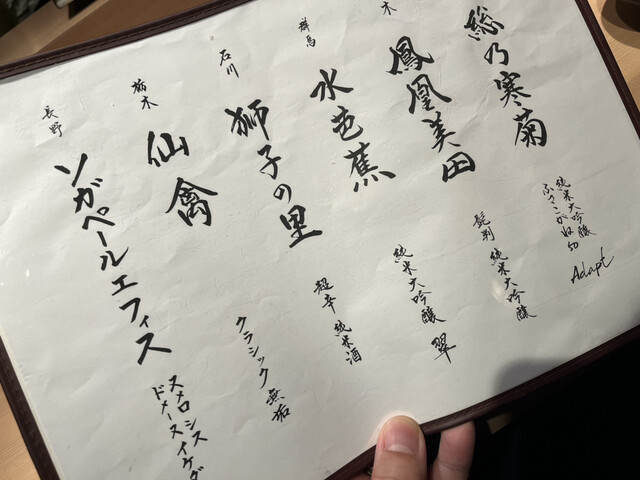 総乃寒菊
純米大吟醸
ふさこがね50
Adapt
木
鳳凰美田
髭判 純米大吟醸
群馬
水芭蕉
純米大吟醸 翠
石川
獅子の里
超辛 純米酒
栃木
仙禽
クラシック 無垢
長野
ソガペールエフィス
ヌメロ シス
ドメーヌイケダ